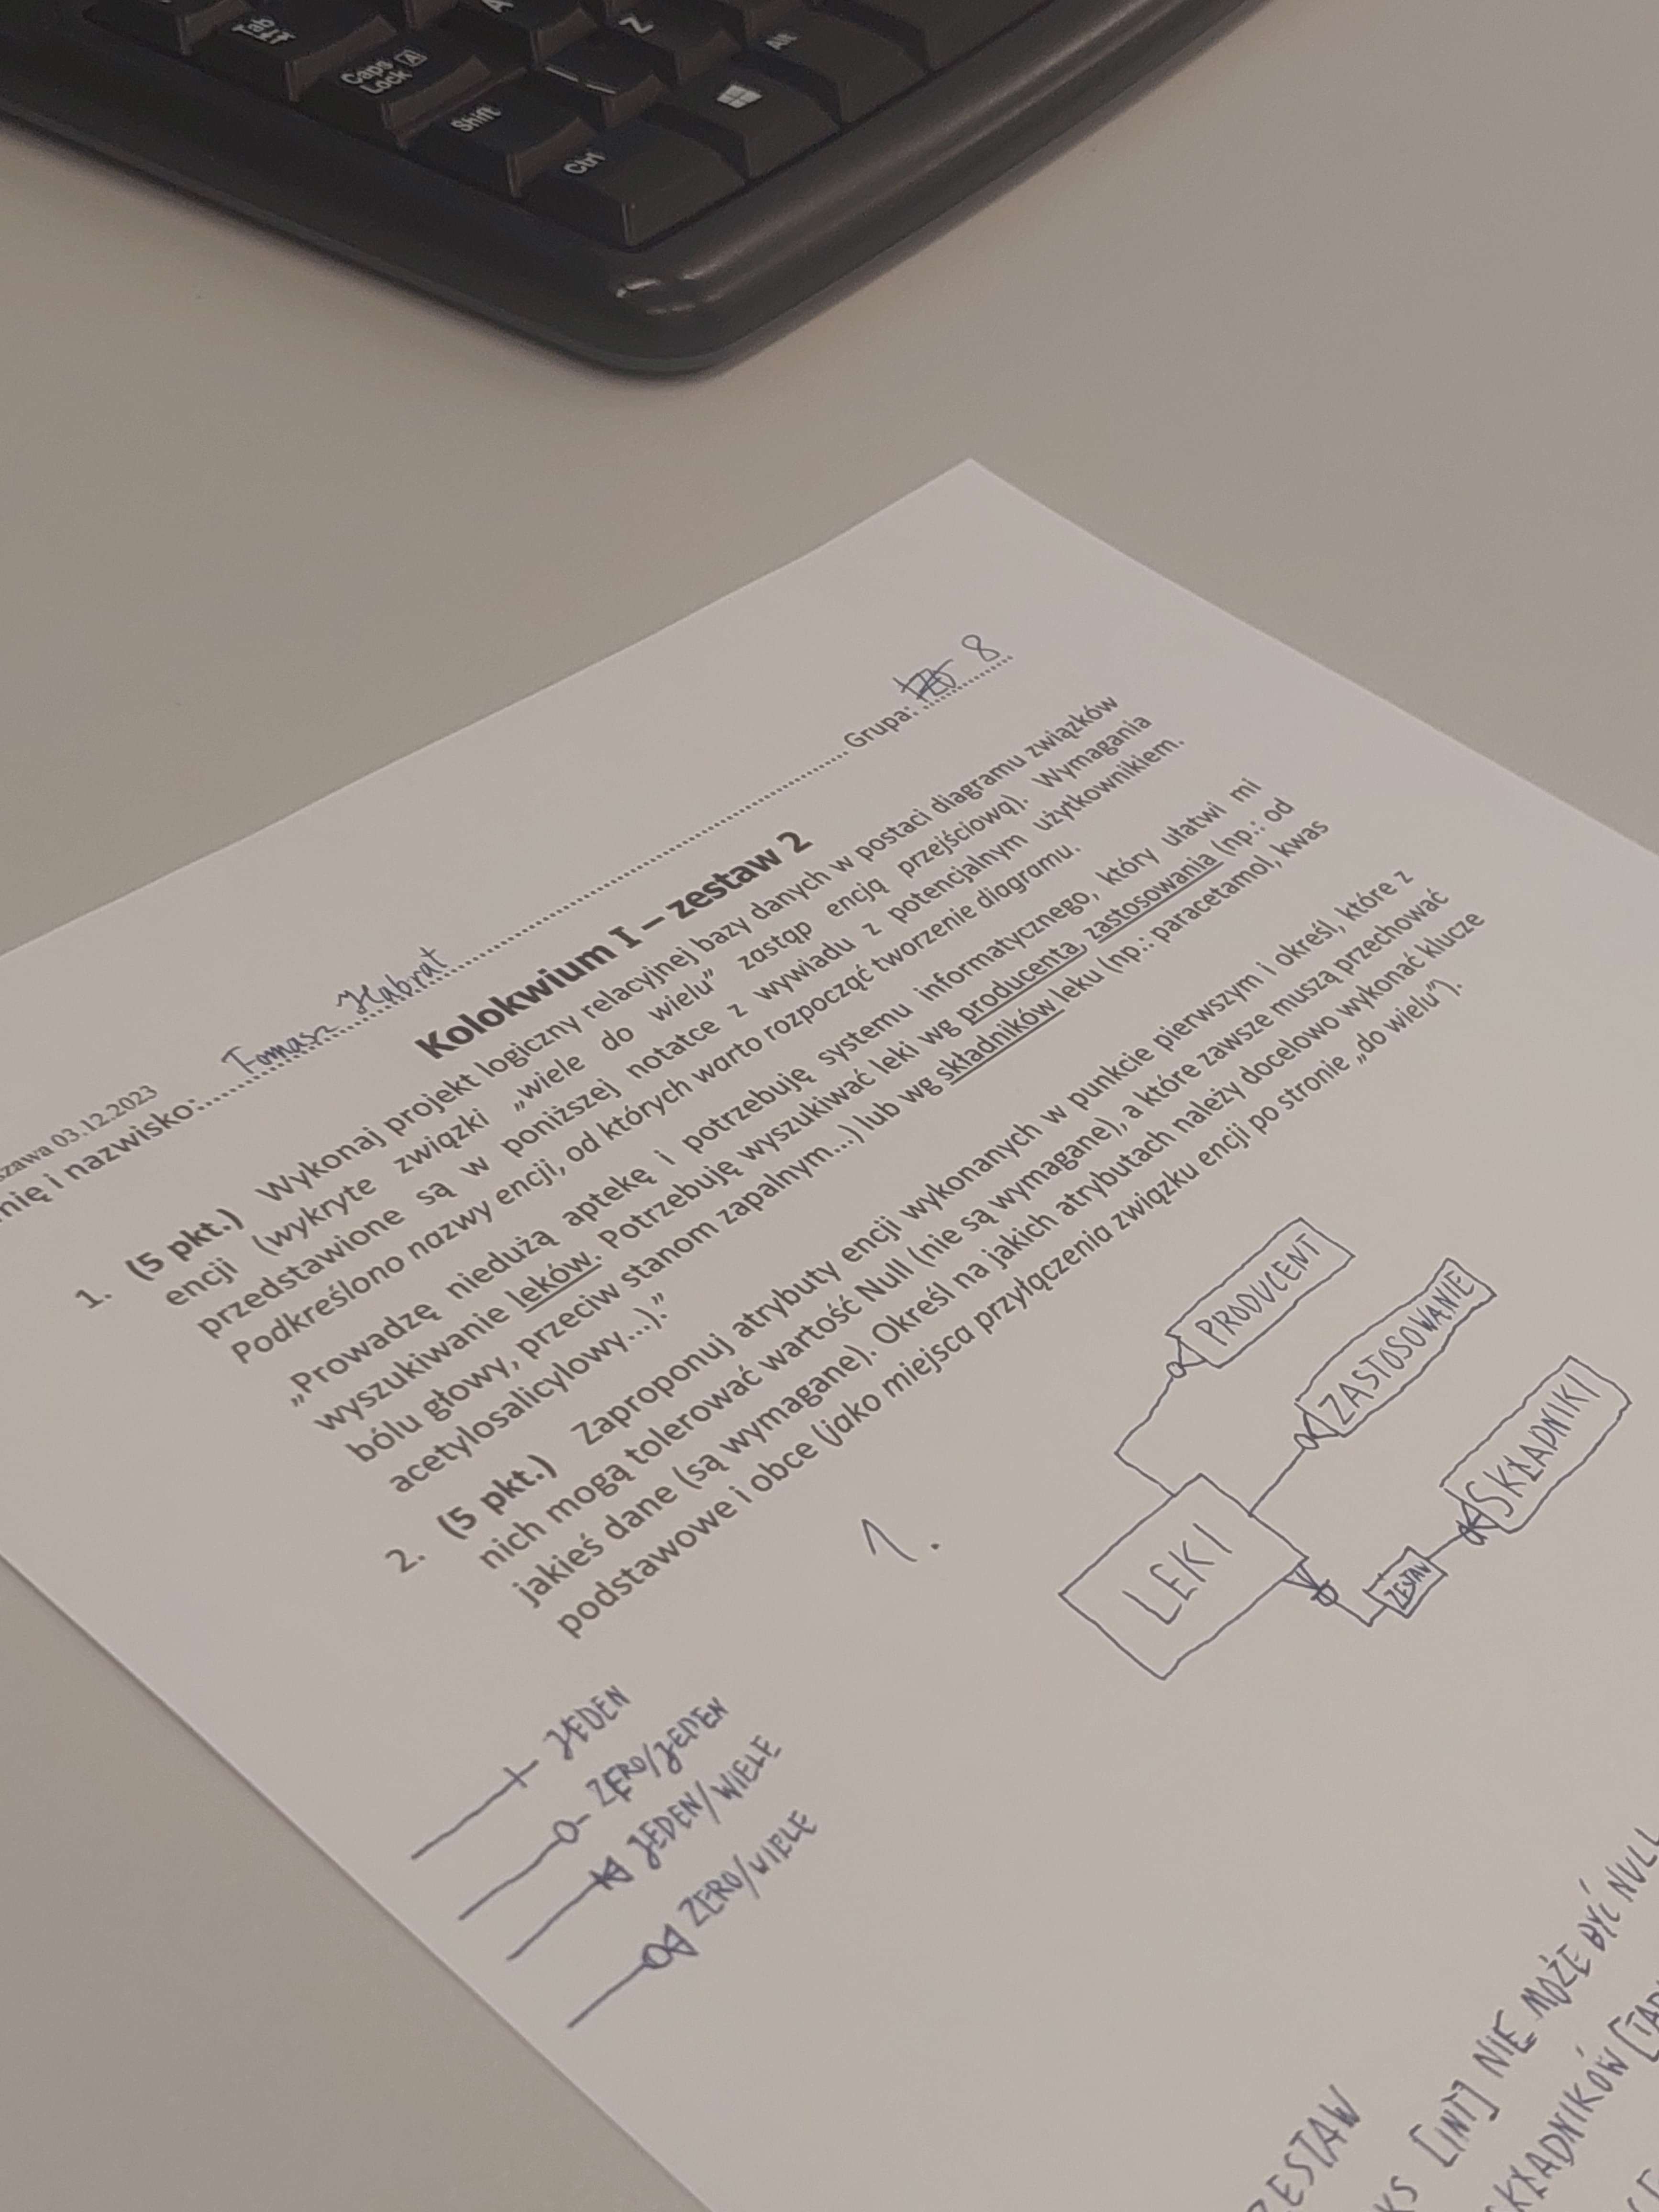 Tab
A
Z
Alt
Caps Lock A
Shift
Ctrl
szawa 03.12.2023
nię i nazwisko: Tomasz Habrat Grupa: 8
Kolokwium I – zestaw 2
1. (5 pkt.) Wykonaj projekt logiczny relacyjnej bazy danych w postaci diagramu związków
encji (wykryte związki „wiele do wielu” zastąp encją przejściową). Wymagania
przedstawione są w poniższej notatce z wywiadu z potencjalnym użytkownikiem.
Podkreślono nazwy encji, od których warto rozpocząć tworzenie diagramu.
„Prowadzę niedużą aptekę i potrzebuję systemu informatycznego, który ułatwi mi
wyszukiwanie leków. Potrzebuję wyszukiwać leki wg producenta, zastosowania (np.: od
bólu głowy, przeciw stanom zapalnym...) lub wg składników leku (np.: paracetamol, kwas
acetylosalicylowy...).”
2. (5 pkt.) Zaproponuj atrybuty encji wykonanych w punkcie pierwszym i określ, które z
nich mogą tolerować wartość Null (nie są wymagane), a które zawsze muszą przechować
jakieś dane (są wymagane). Określ na jakich atrybutach należy docelowo wykonać klucze
podstawowe i obce (jako miejsca przyłączenia związku encji po stronie „do wielu”).
1.
PRODUCENT
ZASTOSOWANIE
SKŁADNIKI
LEKI
ZESTAW
JEDEN
ZERO/JEDEN
JEDEN/WIELE
ZERO/WIELE
ZESTAW
KS [INT] NIE MOŻE BYĆ NULL
SKŁADNIKÓW